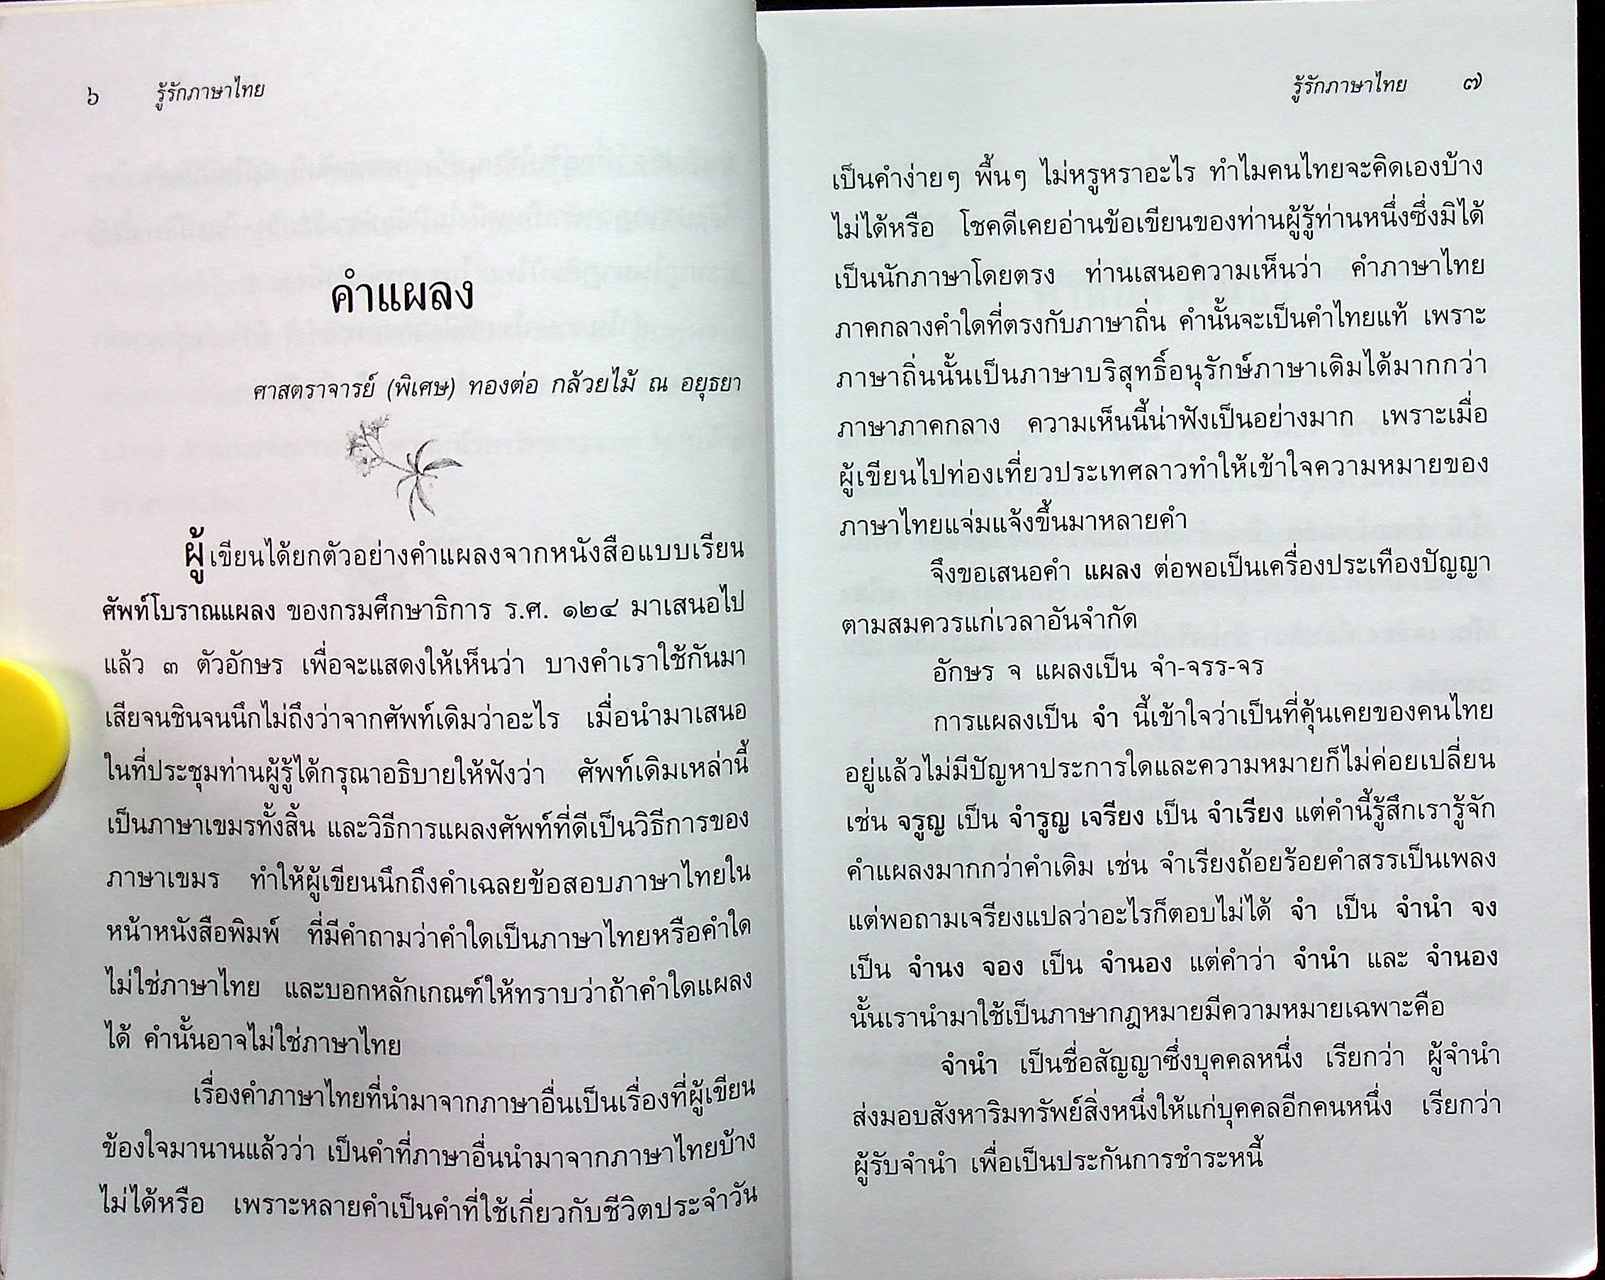 ๖ รู้รักภาษาไทย
คำแผลง
ศาสตราจารย์ (พิเศษ) ทองต่อ กล้วยไม้ ณ อยุธยา
ผู้เขียนได้ยกตัวอย่างคำแผลงจากหนังสือแบบเรียน
ศัพท์โบราณแผลง ของกรมศึกษาธิการ ร.ศ. ๑๒๔ มาเสนอไป
แล้ว ๓ ตัวอักษร เพื่อจะแสดงให้เห็นว่า บางคำเราใช้กันมา
เสียจนชินจนนึกไม่ถึงว่าจากศัพท์เดิมว่าอะไร เมื่อนำมาเสนอ
ในที่ประชุมท่านผู้รู้ได้กรุณาอธิบายให้ฟังว่า ศัพท์เดิมเหล่านี้
เป็นภาษาเขมรทั้งสิ้น และวิธีการแผลงศัพท์ที่ดีเป็นวิธีการของ
ภาษาเขมร ทำให้ผู้เขียนนึกถึงคำเฉลยข้อสอบภาษาไทยใน
หน้าหนังสือพิมพ์ ที่มีคำถามว่าคำใดเป็นภาษาไทยหรือคำใด
ไม่ใช่ภาษาไทย และบอกหลักเกณฑ์ให้ทราบว่าถ้าคำใดแผลง
ได้ คำนั้นอาจไม่ใช่ภาษาไทย
เรื่องคำภาษาไทยที่นำมาจากภาษาอื่นเป็นเรื่องที่ผู้เขียน
ข้องใจมานานแล้วว่า เป็นคำที่ภาษาอื่นนำมาจากภาษาไทยบ้าง
ไม่ได้หรือ เพราะหลายคำเป็นคำที่ใช้เกี่ยวกับชีวิตประจำวัน
รู้รักภาษาไทย ๗
เป็นคำง่ายๆ พื้นๆ ไม่หรูหราอะไร ทำไมคนไทยจะคิดเองบ้าง
ไม่ได้หรือ โชคดีเคยอ่านข้อเขียนของท่านผู้รู้ท่านหนึ่งซึ่งมิได้
เป็นนักภาษาโดยตรง ท่านเสนอความเห็นว่า คำภาษาไทย
ภาคกลางคำใดที่ตรงกับภาษาถิ่น คำนั้นจะเป็นคำไทยแท้ เพราะ
ภาษาถิ่นนั้นเป็นภาษาบริสุทธิ์อนุรักษ์ภาษาเดิมได้มากกว่า
ภาษาภาคกลาง ความเห็นนี้น่าฟังเป็นอย่างมาก เพราะเมื่อ
ผู้เขียนไปท่องเที่ยวประเทศลาวทำให้เข้าใจความหมายของ
ภาษาไทยแจ่มแจ้งขึ้นมาหลายคำ
จึงขอเสนอคำ แผลง ต่อพอเป็นเครื่องประเทืองปัญญา
ตามสมควรแก่เวลาอันจำกัด
อักษร จ แผลงเป็น จำ-จรร-จร
การแผลงเป็น จำ นี้เข้าใจว่าเป็นที่คุ้นเคยของคนไทย
อยู่แล้วไม่มีปัญหาประการใดและความหมายก็ไม่ค่อยเปลี่ยน
เช่น จรูญ เป็น จำรูญ เจรียง เป็น จำเรียง แต่คำนี้รู้สึกเรารู้จัก
คำแผลงมากกว่าคำเดิม เช่น จำเรียงถ้อยร้อยคำสรรเป็นเพลง
แต่พอถามเจรียงแปลว่าอะไรก็ตอบไม่ได้ จำ เป็น จำนำ จง
เป็น จำนง จอง เป็น จำนอง แต่คำว่า จำนำ และ จำนอง
นั้นเรานำมาใช้เป็นภาษากฎหมายมีความหมายเฉพาะคือ
จำนำ เป็นชื่อสัญญาซึ่งบุคคลหนึ่ง เรียกว่า ผู้จำนำ
ส่งมอบสังหาริมทรัพย์สิ่งหนึ่งให้แก่บุคคลอีกคนหนึ่ง เรียกว่า
ผู้รับจำนำ เพื่อเป็นประกันการชำระหนี้